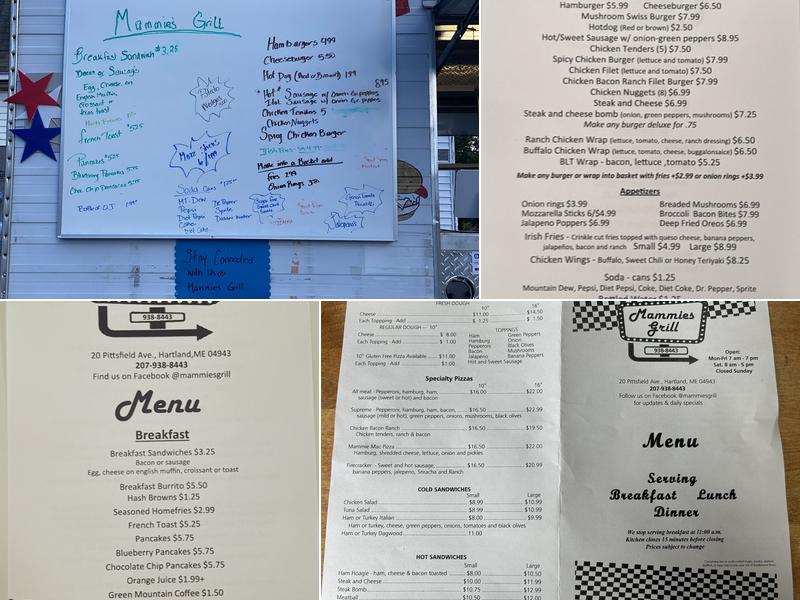 Mammies Grill
Breakfast Sandwich $3.25
Bacon or Sausage
Egg, Cheese on
English Muffin
croissant or
Texas toast
French Toast $5.25
Pancakes $5.25
Blueberry Pancakes 5.75
Choc. Chip Pancakes 5.75
Bottle of O.J. 1.99
Soda Cans $1.25
MT. Dew
Pepsi
Diet Pepsi
Coke
Diet Coke
Dr. Pepper
Sprite
Hamburgers 4.99
Cheeseburger 5.50
Hot Dog (Red or Brown) 1.99
8.95
Hot Sausage w/ Onion Gr. peppers
Chicken Tenders 5
Chicken Nuggets
Spicy Chicken Burger
Make into a Basket add
fries 2.99
Onion Rings
Stay Connected
with Us @
Mammies Grill
Hamburger $5.99 Cheeseburger $6.50
Mushroom Swiss Burger $7.99
Hotdog (Red or brown) $2.50
Hot/Sweet Sausage w/ onion-green peppers $8.95
Chicken Tenders (5) $7.50
Spicy Chicken Burger (lettuce and tomato) $7.99
Chicken Filet (lettuce and tomato) $7.50
Chicken Bacon Ranch Filet Burger $7.99
Chicken Nuggets (8) $6.99
Steak and Cheese $6.99
Steak and cheese bomb (onion, green peppers, mushrooms) $7.25
Make any burger deluxe for .75
Ranch Chicken Wrap (lettuce, tomato, cheese, ranch dressing) $6.50
Buffalo Chicken Wrap (lettuce, tomato, cheese, buggalonsaice) $6.50
BLT Wrap - bacon, lettuce ,tomato $5.25
Make any burger or wrap into basket with fries +$2.99 or onion rings +$3.99
Appetizers
Onion rings $3.99 Breaded Mushrooms $6.99
Mozzarella Sticks 6/$4.99 Broccoli Bacon Bites $7.99
Jalapeno Poppers $6.99 Deep Fried Oreos $6.99
Irish Fries - Crinkle cut fries topped with queso cheese, banana peppers,
jalapeños, bacon and ranch Small $4.99 Large $8.99
Chicken Wings - Buffalo, Sweet Chili or Honey Teriyaki $8.25
Soda - cans $1.25
Mountain Dew, Pepsi, Diet Pepsi, Coke, Diet Coke, Dr. Pepper, Sprite
Bottled Water $1.25
938-8443
20 Pittsfield Ave., Hartland,ME 04943
207-938-8443
Find us on Facebook @mammiesgrill
Menu
Breakfast
Breakfast Sandwiches $3.25
Bacon or sausage
Egg, cheese on english muffin, croissant or toast
Breakfast Burrito $5.50
Hash Browns $1.25
Seasoned Homefries $2.99
French Toast $5.25
Pancakes $5.75
Blueberry Pancakes $5.75
Chocolate Chip Pancakes $5.75
Orange Juice $1.99+
Green Mountain Coffee $1.50
FRESH DOUGH
10" 16"
Cheese $11.00 $14.50
Each Toppping - Add $ 1.25 $ 1.50
REGULAR DOUGH — 10"
Cheese $ 8.00
Each Topping - Add $ 1.00
10" Gluten Free Pizza Available $11.00
Each Topping - Add $1.00
TOPPINGS
Ham Green Peppers
Hamburg Onion
Pepperoni Black Olives
Bacon Mushrooms
Jalapeno Banana Peppers
Hot and Sweet Sausage
Specialty Pizzas
10" 16"
All meat - Pepperoni, hamburg, ham, $16.00 $22.00
sausage (sweet or hot) and bacon
Supreme - Pepperoni, hamburg, ham, bacon, $16.50 $22.99
sausage (mild or hot), green peppers, onions, mushrooms, black olives
Chicken Bacon Ranch $16.50 $19.50
Chicken tenders, ranch & bacon
Mammie Mac Pizza $16.50 $22.00
Hamburg, shredded cheese, lettuce, onion and pickles
Firecracker - Sweet and hot sausage, $16.50 $20.99
banana peppers, jalepeno, Sriracha and Ranch
COLD SANDWICHES
Small Large
Chicken Salad $8.99 $10.99
Tuna Salad $8.99 $10.99
Ham or Turkey Italian $8.00 $9.99
Ham or turkey, cheese, green peppers, onions, tomatoes and black olives
Ham or Turkey Dagwood 11.00
HOT SANDWICHES
Small Large
Ham Hoagie - ham, cheese & bacon toasted $8.00 $10.50
Steak and Cheese $10.00 $11.99
Steak Bomb $10.75 $12.99
Meatball $10.50 $12.00
Mammies
Grill
938-8443
Open:
Mon-Fri 7 am - 7 pm
Sat. 8 am - 5 pm
Closed Sunday
20 Pittsfield Ave., Hartland, ME 04943
207-938-8443
Follow us on Facebook @mammiesgrill
for updates & daily specials
Menu
Serving
Breakfast Lunch
Dinner
We stop serving breakfast at 11:00 a.m.
Kitchen closes 15 minutes before closing
Prices subject to change